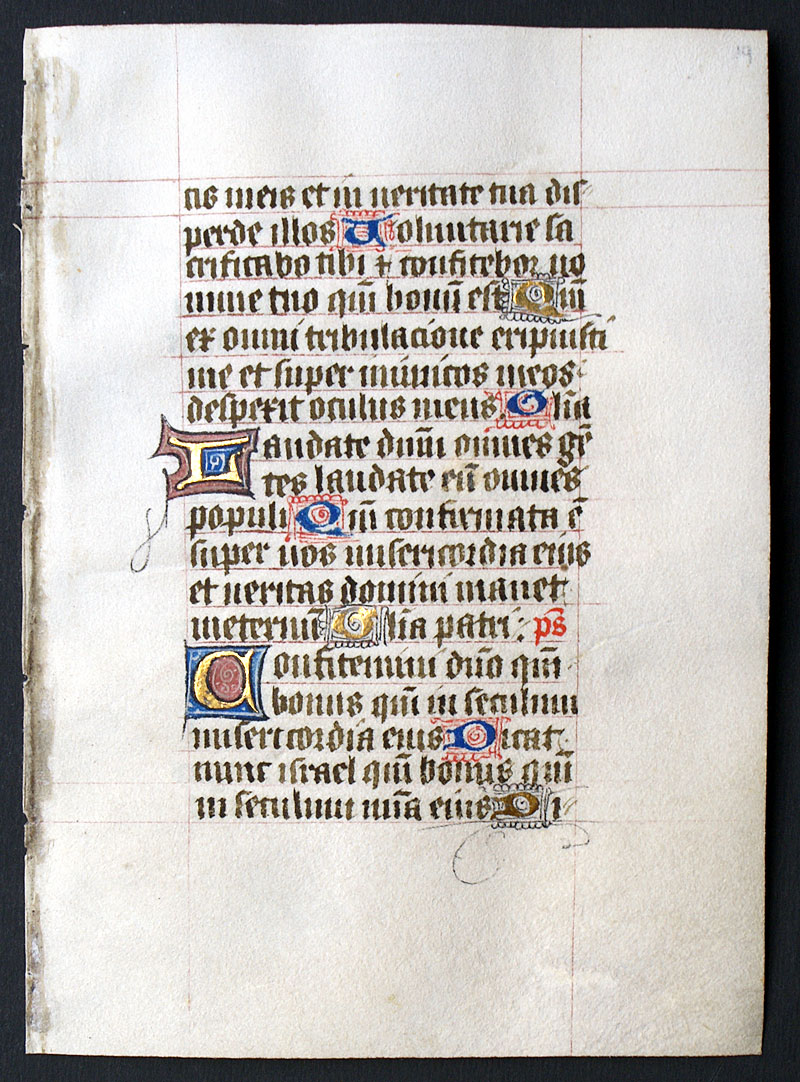 19
cis meis et in ueritate tua dis
perde illos Uoluntarie sa
crificabo tibi ⁊ confitebor no
mine tuo qm̄ bonū est Qm̄
ex omni tribulacione eripuisti
me et super inimicos meos
despexit oculus meus Gl̄ia
Laudate dnm̄ omnes gē
tes laudate eū omnes
populi Qm̄ confirmata ē
super nos misericordia eius
et ueritas domini manet
ineternū Gl̄ia patri: ps̄
Confitemini dn̄o qm̄
bonus qm̄ in seculum
misericordia eius Dicat
nunc israel qm̄ bonus qm̄
in seculum mīa eius Di